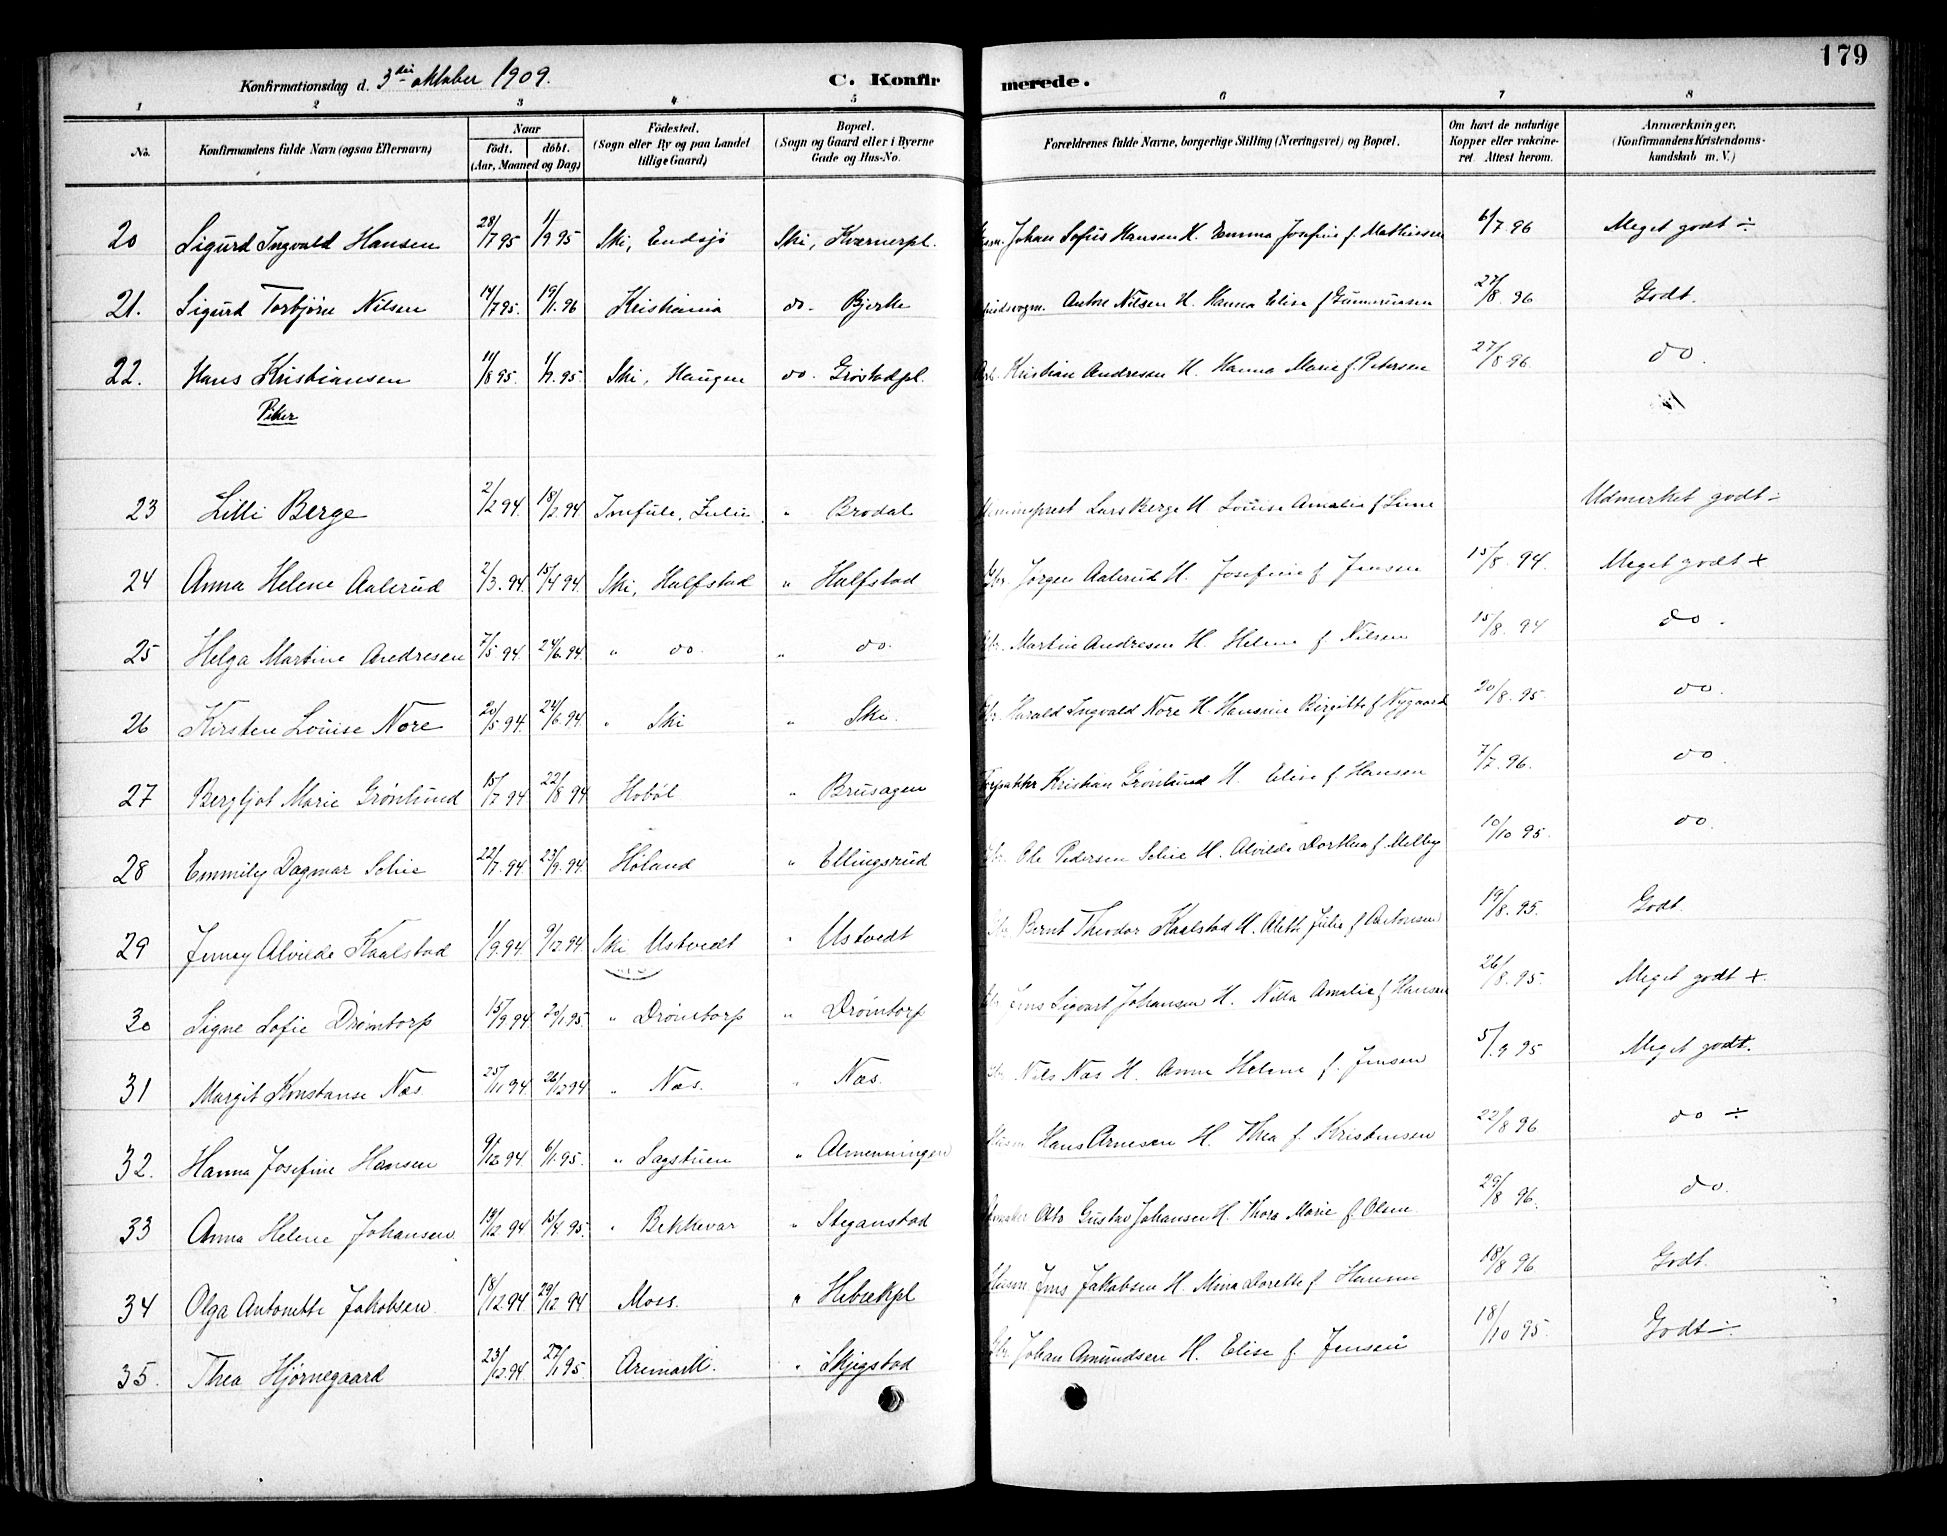 179
Konfirmationsdag d. 3die oktober 1909.
C. Konfirmerede.
1 2 3 4 5 6 7 8
No. Konfirmandens fulde Navn (ogsaa Efternavn) Naar födt. döbt. (Aar, Maaned og Dag) Födested. (Sogn eller By og paa Landet tillige Gaard) Bopæl. (Sogn og Gaard eller i Byerne Gade og Hus-No. Forældrenes fulde Navne, borgerlige Stilling (Næringsvei) og Bopæl. Om havt de naturlige Kopper eller vakcineret. Attest herom. Anmærkninger. (Konfirmandens Kristendomskundskab m. V.)
20 Sigurd Ingvald Hansen 28/7 95 1/9 95 Ski, Endsjø Ski, Kværnerpl. Johan Sofus Hansen H. Emma Josefine f. Mathissen 6/7 96 Meget godt ÷
21. Sigurd Torbjørn Nilsen 14/7 95. 19/1. 96 Kristiania do. Bjerke Anton Nilsen H. Hanna Elise f. Gummunsen 27/8. 96 Godt.
22. Hans Kristiansen 11/8 95. 1/9. 95 Ski, Haugen do. Grøstadpl. Kristian Andresen H. Hanna Marie f. Petersen 27/8 96. do.
Piker
23 Lilli Berge 2/2 94. 18/2. 94 " Brodal Lars Berge H. Louise Amalie f Lime Udmerket godt ÷
24 Anna Helene Aalerud 2/3. 94. 15/4 94. Ski, Halfstad " Halfstad Gbr. Jørgen Aalerud H. Josefine f Jensen 15/8. 94. Meget godt +
25 Helga Martine Andresen 7/5 94. 24/6. 94. " do. " do. Gbr. Martin Andresen H. Helene f. Nilsen 15/8. 94 do.
26 Kirsten Louise Nore 20/5 94. 24/6 94 " Ski " Ski. Gbr. Harald Ingvald Nore H. Hansine Birgitte f Nygaard 20/8. 95. do.
27 Bergljot Marie Grønlund 15/7 94 22/8 94 Hobøl " Brusagen Kristian Grønlund H. Elise f Hansen 7/7. 96. do
28 Emmily Dagmar Solie 22/7. 94 23/9. 94. Høland " Ellingsrud Gbr. Ole Pedersen Solie H. Alvilde Dorthea f Melby 10/10 95. do.
29 Jenny Alvilde Kaalstad 1/9. 94. 9/12. 94. Ski Ustvedt " Ustvedt Gbr. Bernt Theodor Kaalstad H. Aleth Julie f Antonsen 19/8. 95. Godt.
30 Signe Sofie Drømtorp 15/9 94 20/1 95 " Drømtorp " Drømtorp Gbr. Jens Sigvart Johansen H. Nilla Amalie f Hansen 26/8. 95. Meget godt +
31 Margit Konstanse Næs 25/11 94 26/12 94 " Næs. " Næs. Gbr. Nils Næs H. Anne Helene f. Jensen 5/9 95 Meget godt.
32. Hanna Josefine Hansen 9/12 94 6/1. 95. " Sagstuen " Almenningen Husm. Hans Arnesen H. Thea f. Kristensen 22/8 96 do ÷
33 Anna Helene Johansen 19/12 94 15/4. 95. " Bekkevar " Steganstad Otto Gustav Johansen H. Thora Marie f. Olsen 29/8 96. do.
34 Olga Antonette Jakobsen 18/12 94 29/12 94 Moss. " Hebekpl Husm. Jens Jakobsen H. Mina Dorette f Hansen 18/8 96 Godt.
35. Thea Hjørnegaard 23/12. 94 27/1 95 Aremark. " Skjegstad Gbr. Johan Amundsen H. Elise f Jensen 18/10 95. Godt ÷